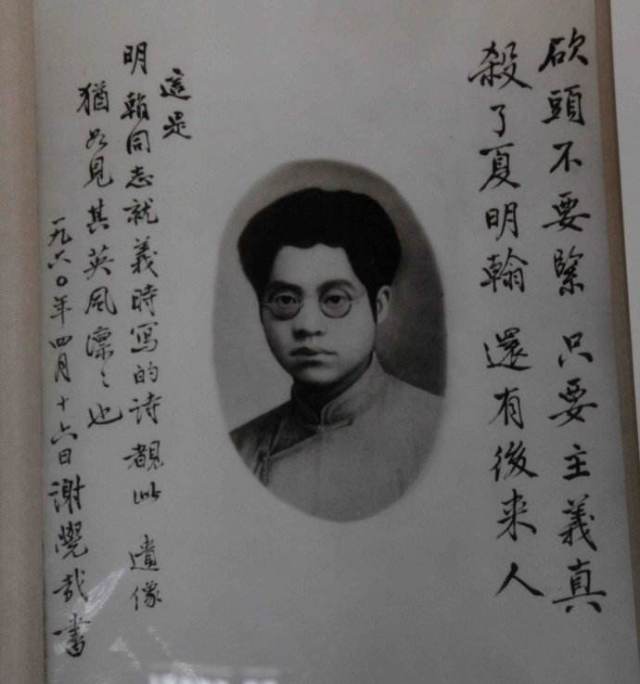 欰頭不要緊 只要主義真
殺了夏明翰 還有後来人
這是
明翰同志就義時写的诗 覩此 遺像
猶如見其英風凛々也
一九六〇年四月十六日謝覺哉書